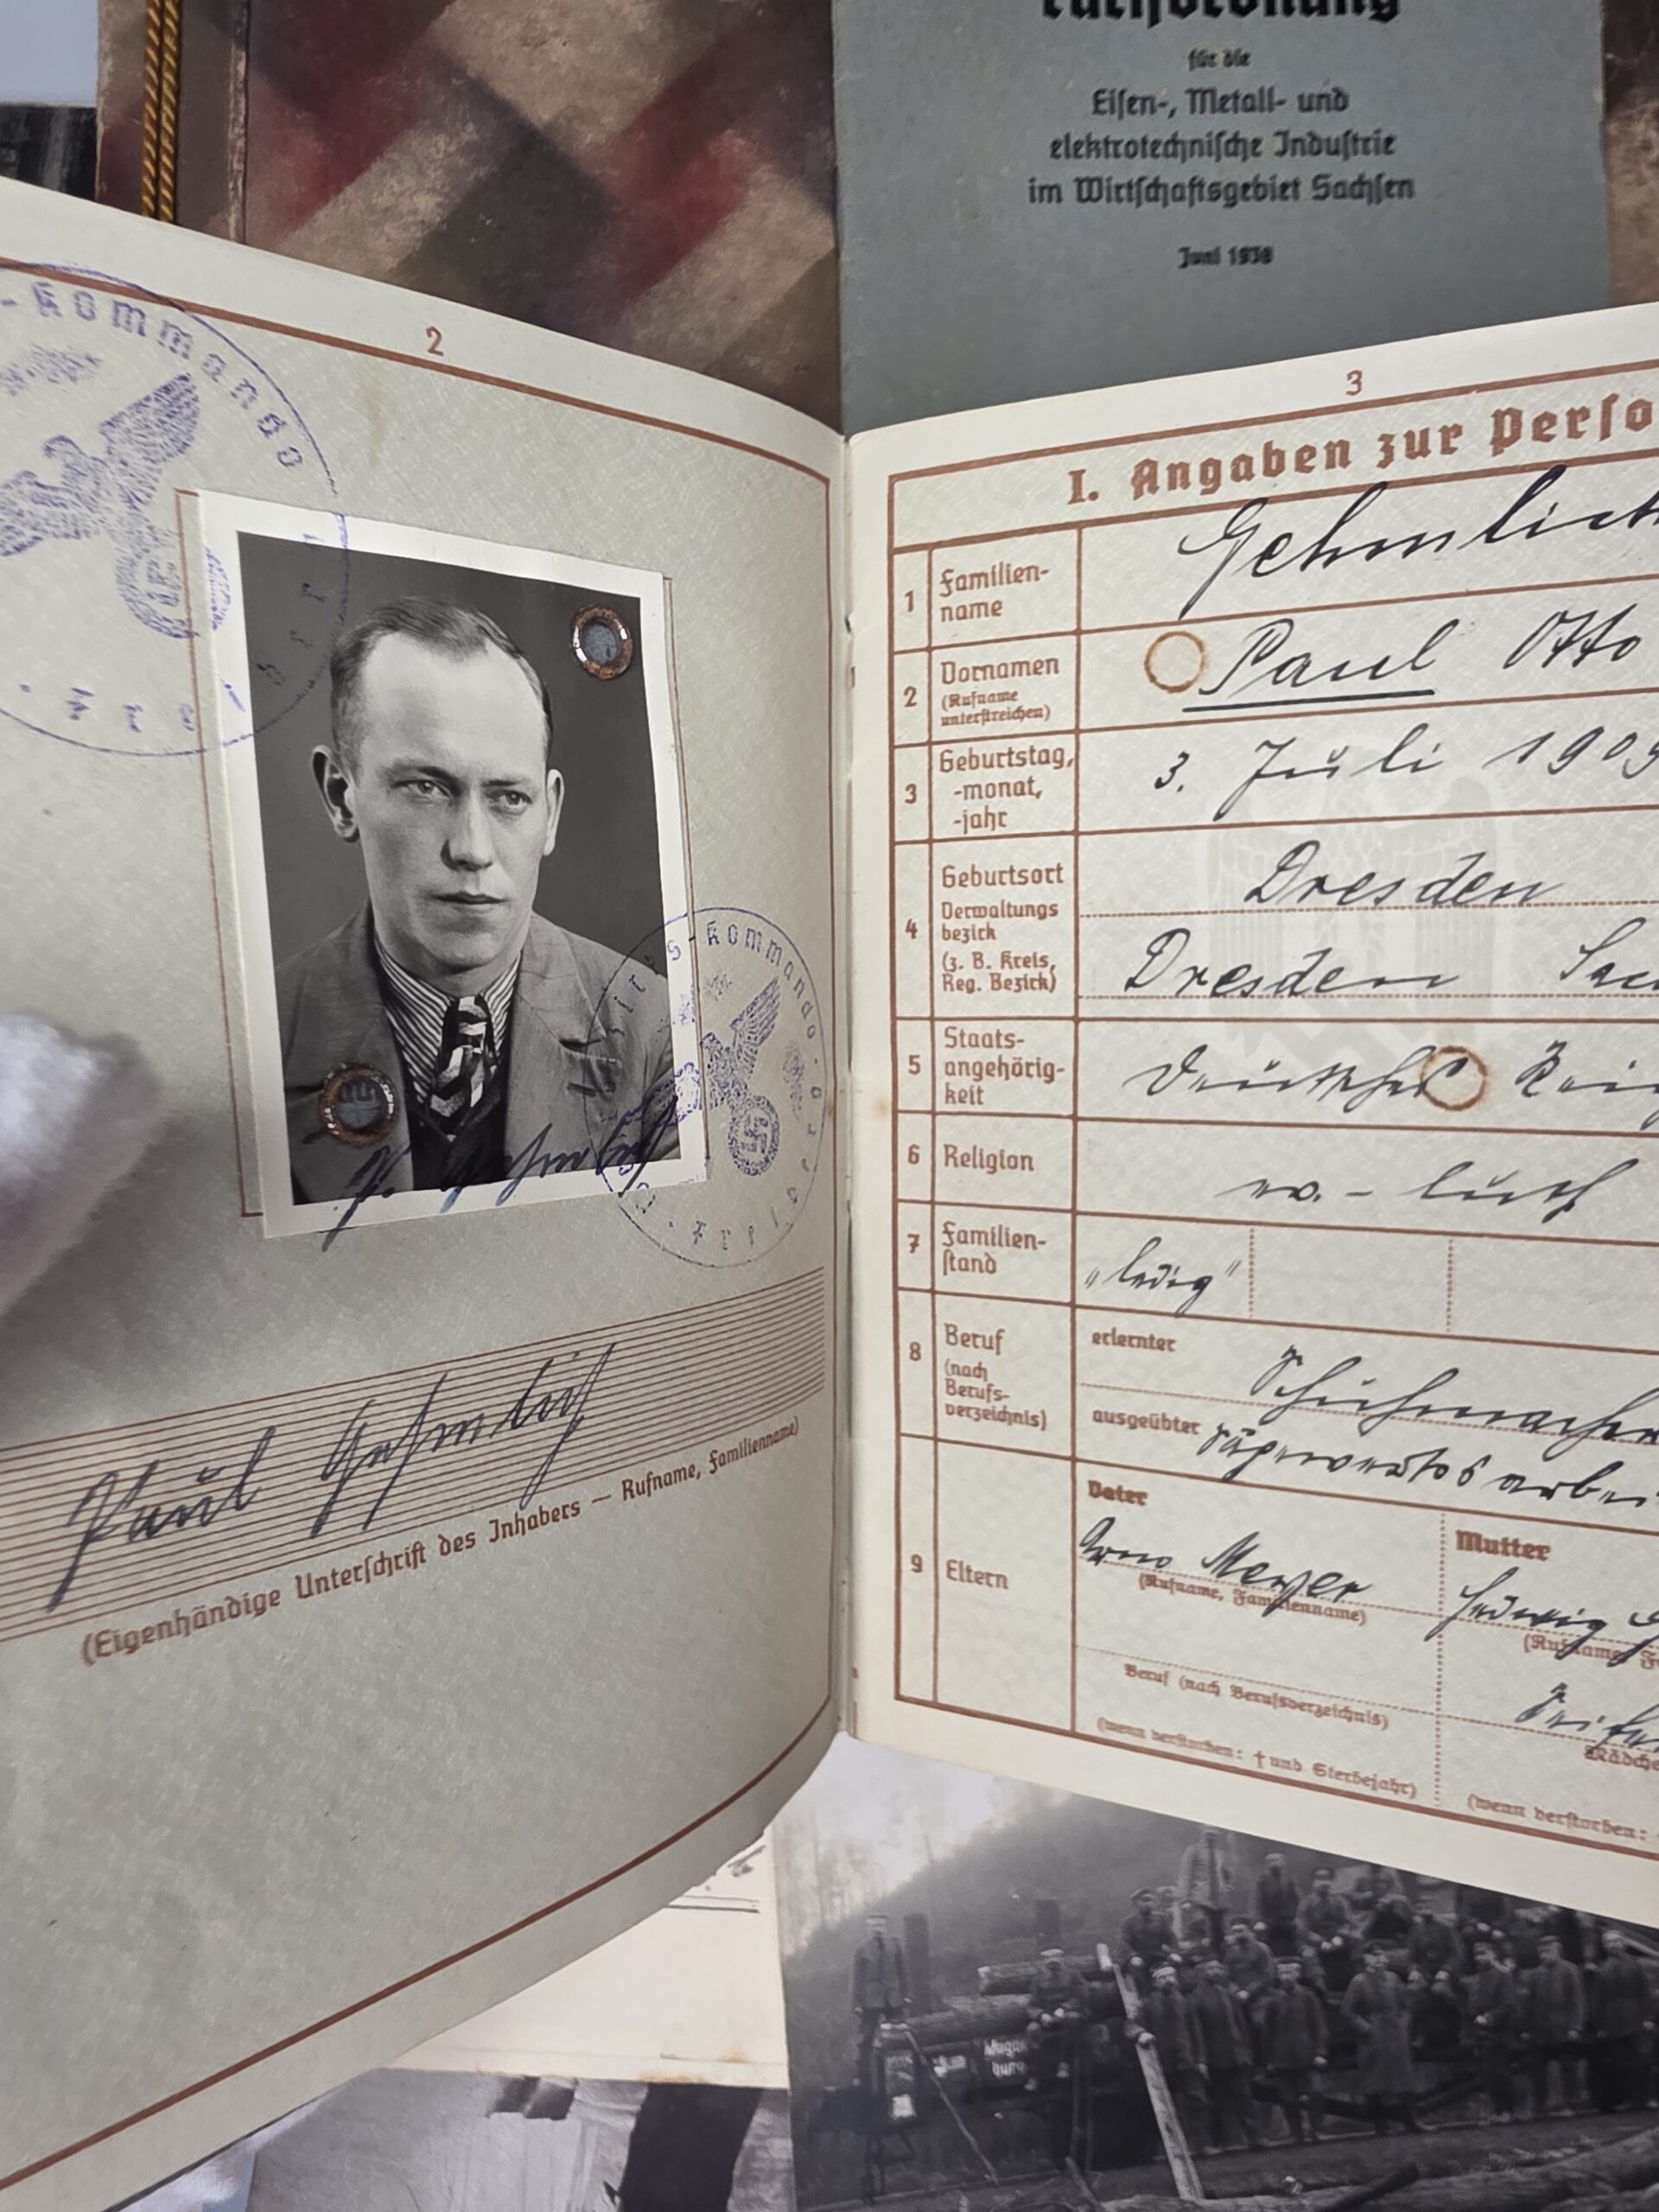 für die
Eisen-, Metall- und
elektrotechnische Industrie
im Wirtschaftsgebiet Sachsen
Juni 1938
-Kommando
2
s-Kommando
P. Gehmlich
Paul Gehmlich
(Eigenhändige Unterschrift des Inhabers — Rufname, Familienname)
3
I. Angaben zur Perso
1 Familien-
name
Gehmlich
2 Vornamen
(Rufname
unterstreichen)
Paul Otto
3 Geburtstag,
-monat,
-jahr
3. Juli 1909
4 Geburtsort
Verwaltungs
bezirk
(z. B. Kreis,
Reg. Bezirk)
Dresden
Dresden Sac
5 Staats-
angehörig-
keit
Deutsches Reich
6 Religion
ev. - luth
7 Familien-
stand
„ledig"
8 Beruf
(nach
Berufs-
verzeichnis)
erlernter
Schuhmacher
ausgeübter
9 Eltern
Vater
Arno Meyer
(Rufname, Familienname)
Beruf (nach Berufsverzeichnis)
(wenn verstorben: † und Sterbejahr)
Mutter
Hedwig G
(Rufname, F
Mädche
(wenn verstorben: